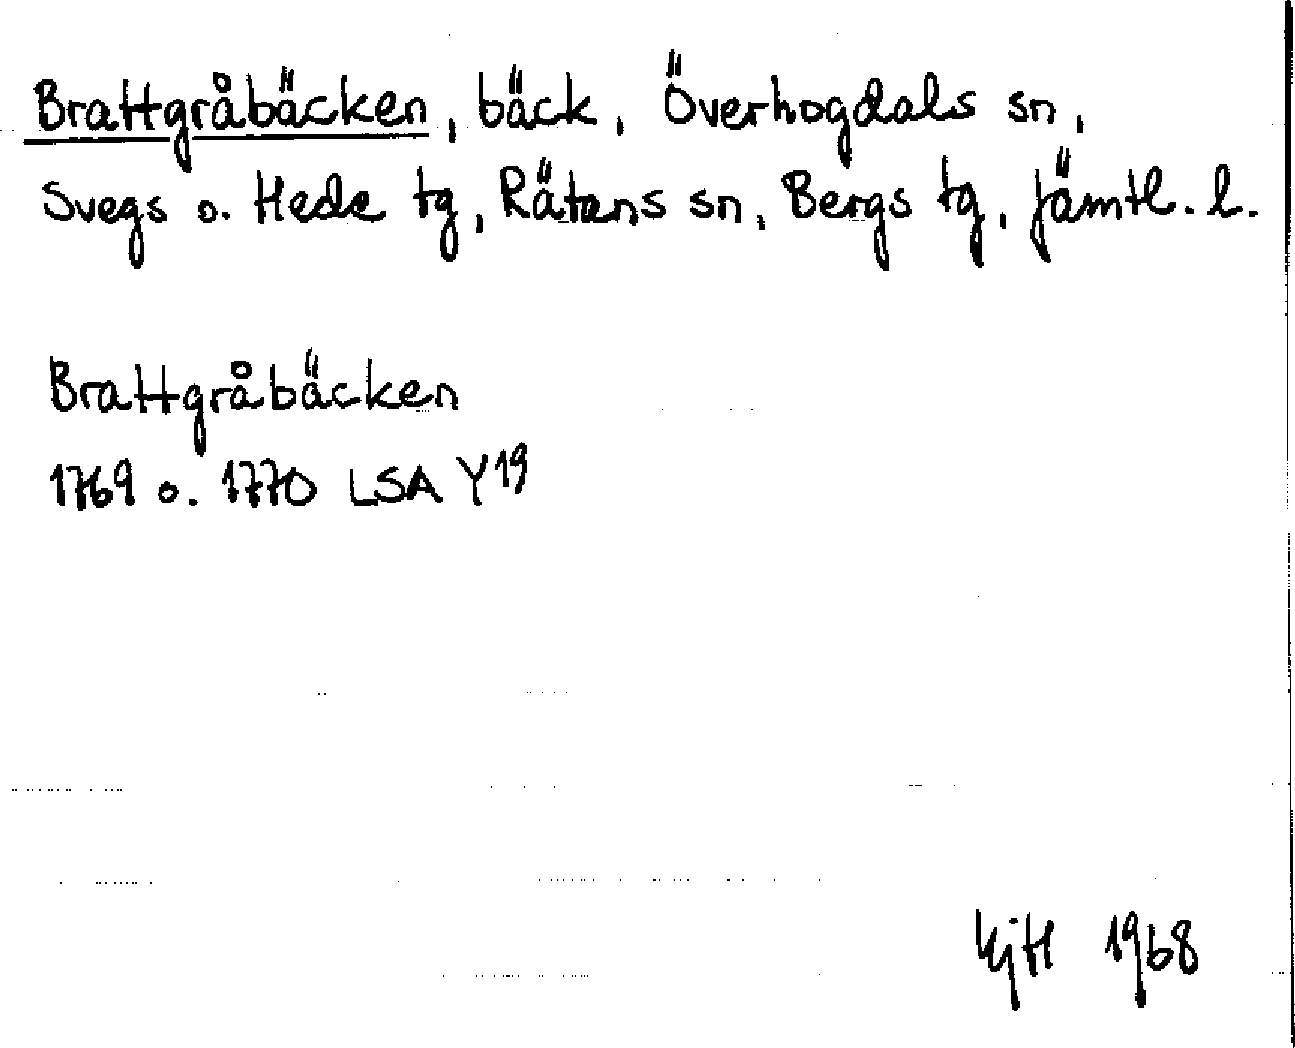 Brattgråbäcken, bäck, Överhogdals sn,
Svegs o. Hede tg, Rätans sn, Bergs tg, Jämtl. l.
Brattgråbäcken
1769 o. 1770 LSA Y19
1968